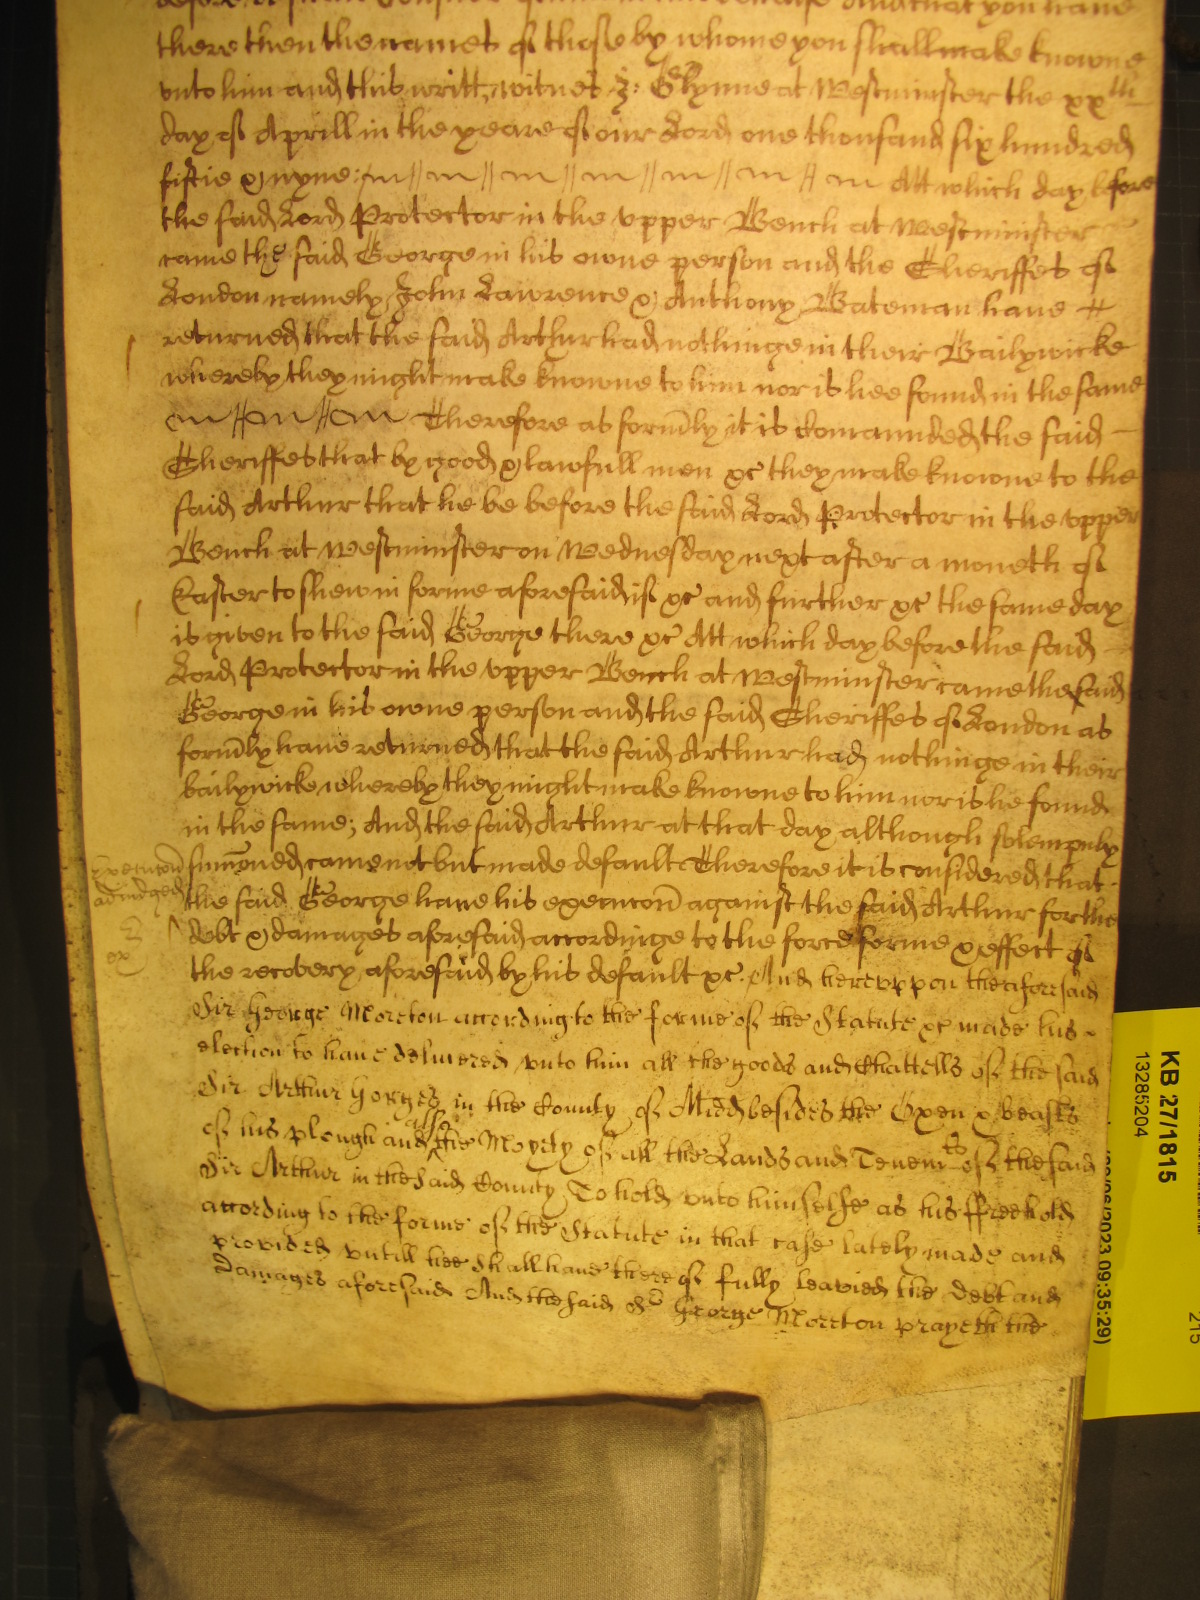 there then the names of those by whome you shall make knowne
vnto him and this writt, witnes J: Glynne at Westminster the xxth
day of Aprill in the yeare of our Lord one thousand six hundred
fiftie & nyne: Att which day before
the said Lord Protector in the vpper Bench at Westminster
came the said George in his owne person and the Sheriffes of
London namely John Lawrence & Anthony Bateman haue
returned that the said Arthur had nothinge in their Bailywicke
whereby they might make knowne to him nor is hee found in the same
Therefore as form̄ly it is Comaunded the said
Sheriffes that by good & lawfull men &c they make knowne to the
said Arthur that he be before the said Lord Protector in the vpper
Bench at Westminster on Wednesday next after a moneth of
Easter to shew in forme aforesaid if &c and further &c the same day
is given to the said George there &c Att which day before the said
Lord Protector in the vpper Bench at Westminster came the said
George in his owne person and the said Sheriffes of London as
form̄ly haue returned that the said Arthur had nothinge in their
bailywicke whereby they might make knowne to him nor is he found
in the same; And the said Arthur at that day although solempnly
sum̄oned came not but made default Therefore it is considered that
execuc̄on
adiudged
the said George haue his execuc̄on against the said Arthur for the
debt & damages aforesaid accordinge to the force forme & effect of
the recovery aforesaid by his default &c. And herevppon the aforesaid
Sir George Moreton according to the forme of the Statute &c made his
election to haue deliuered vnto him all the goods and Chattells of the said
Sir Arthur Gorges in the County of Midd besides the Oxen & beasts
of his plough and also the Moyety of all the Lands and Tenemts of the said
Sir Arthur in the said County To hold vnto himselfe as his ffreehold
according to the forme of the Statute in that case lately made and
provided vntill hee shall haue thereof fully leavied the debt and
damages aforesaid And the said Sr George Moreton prayeth the
KB 27/1815
13285204
2023 09:35:29)
215